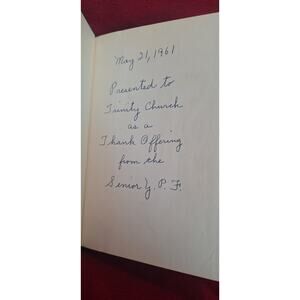 May 21, 1961
Presented to
Trinity Church
as a
Thank Offering
from the
Senior Y. P. F.